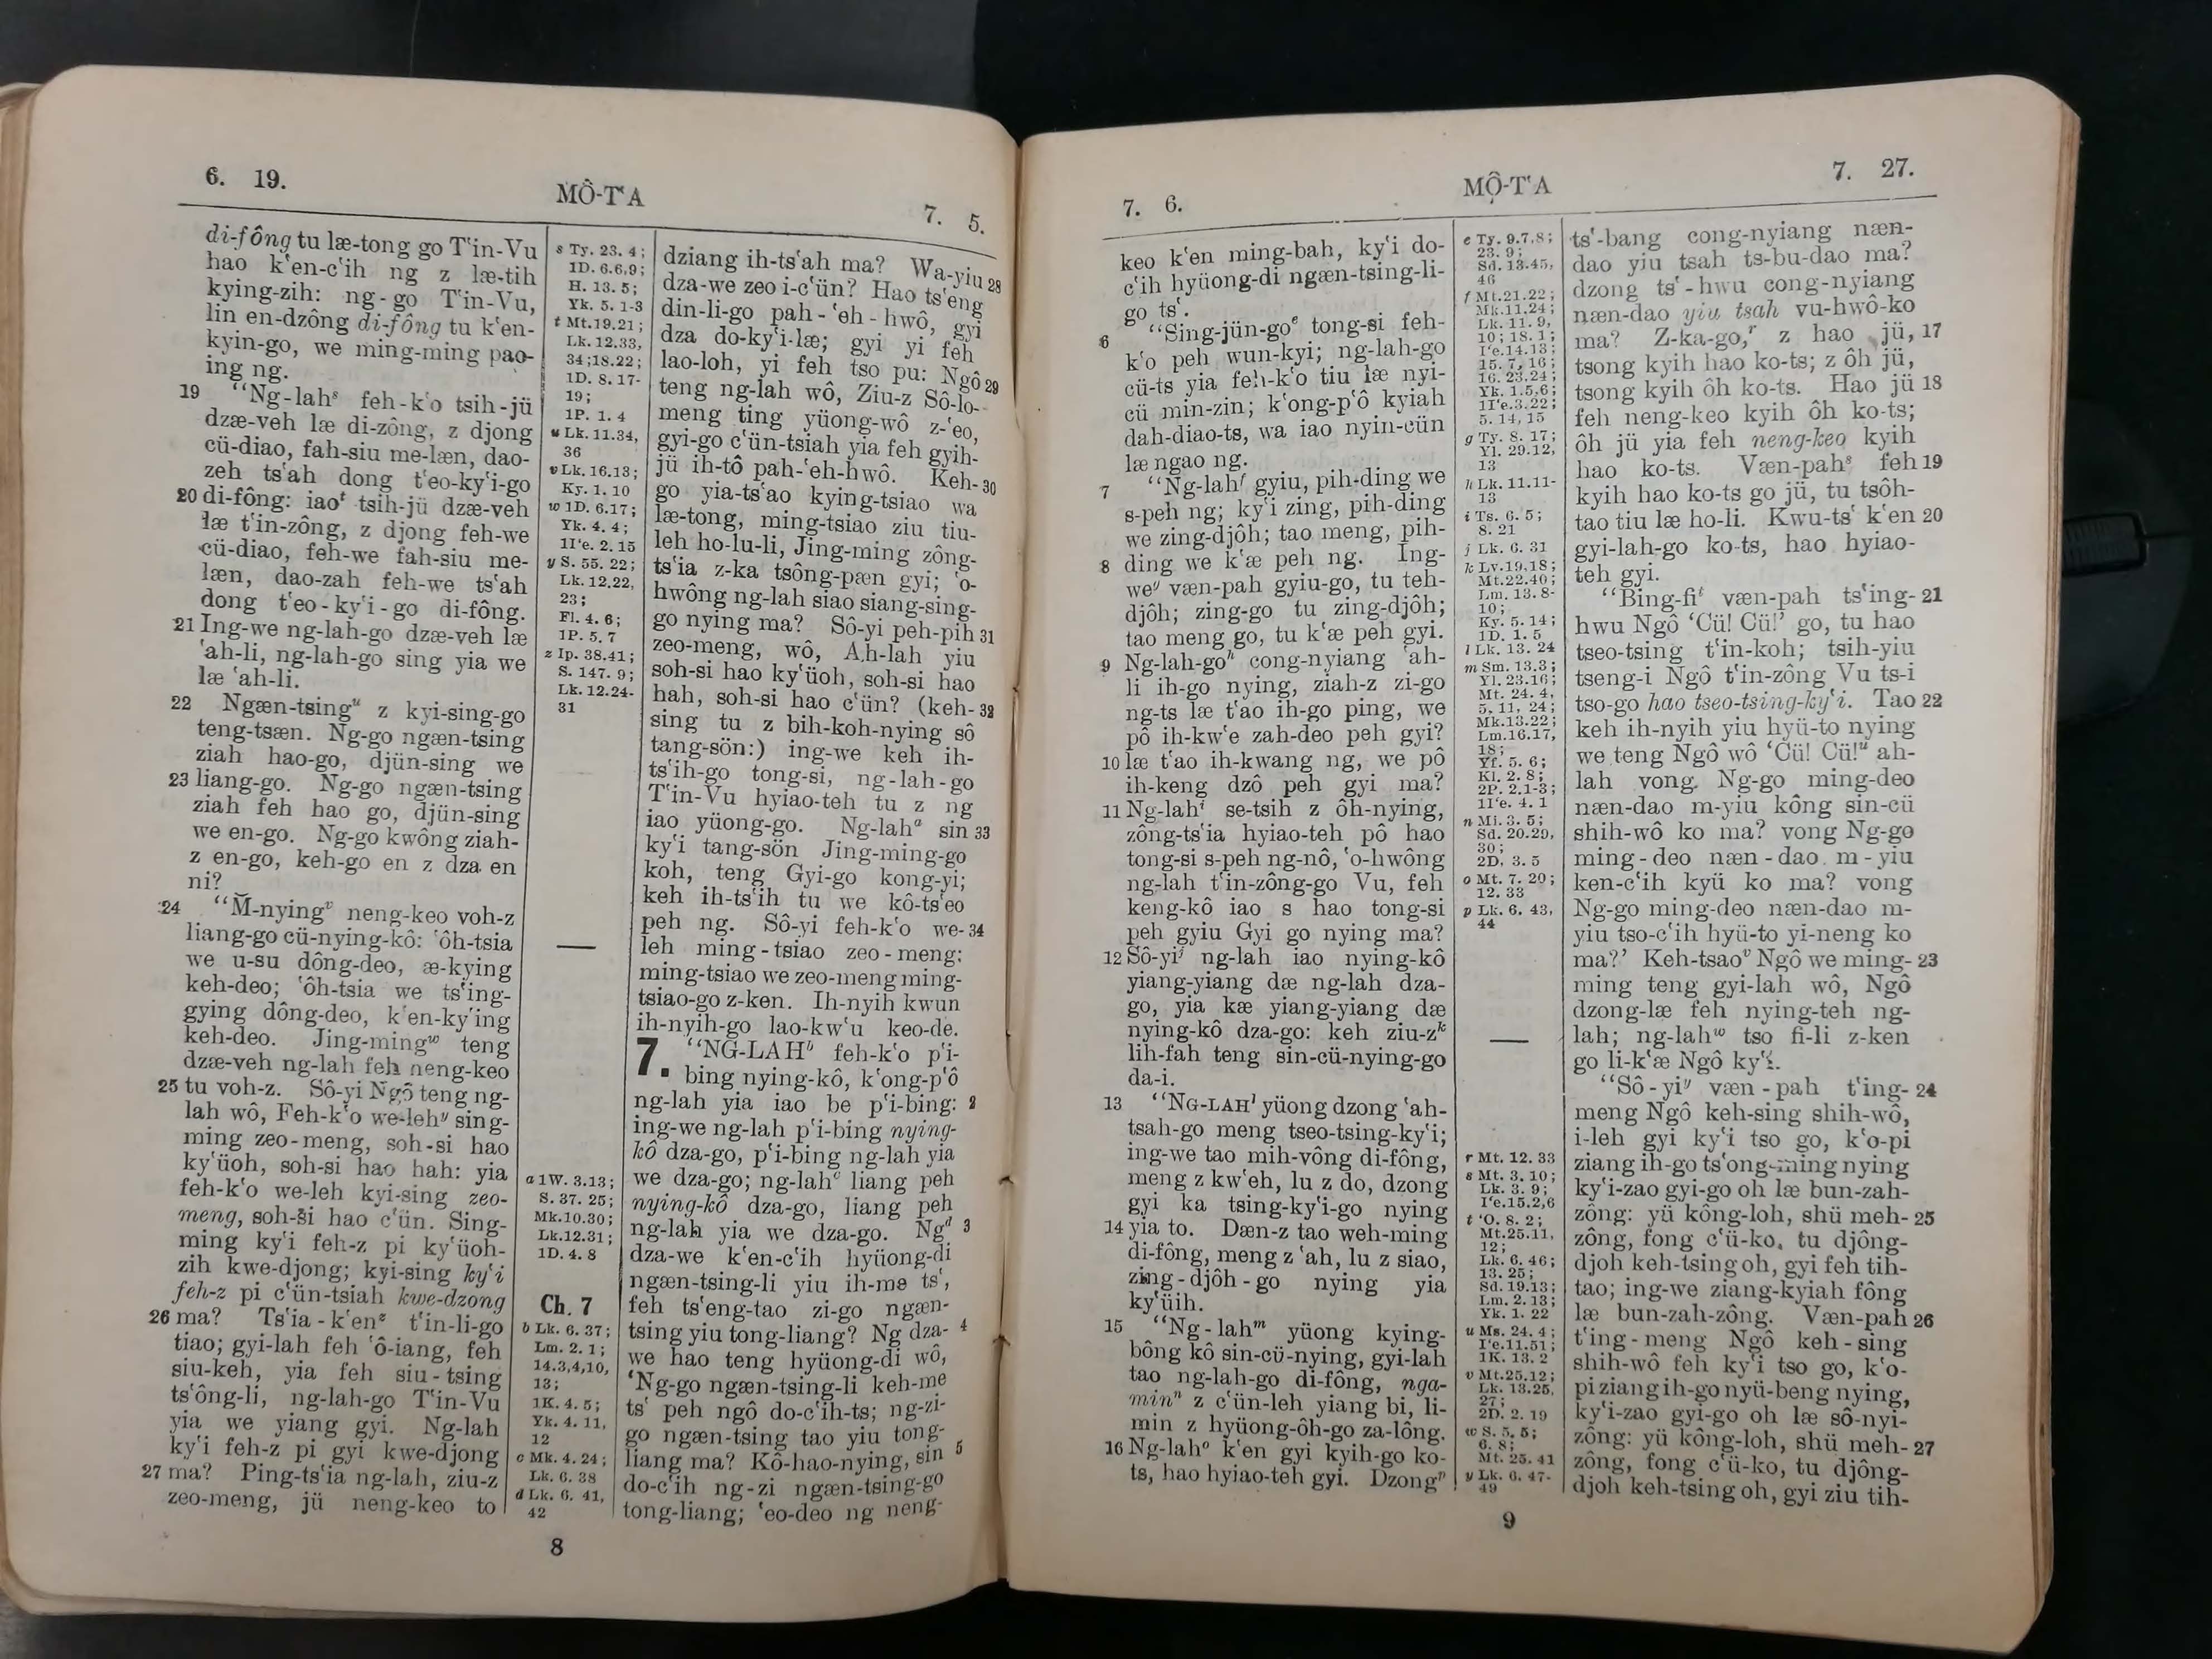 6. 19.
MÔ-T‘A
7. 5.
di-fông tu læ-tong go T‘in-Vu
hao k‘en-c‘ih ng z læ-tih
kying-zih: ng-go T‘in-Vu,
lin en-dzông di-fông tu k‘en-
kyin-go, we ming-ming pao-
ing ng.
19 “Ng-lahˢ feh-k‘o tsih-jü
dzæ-veh læ di-zông, z djong
cü-diao, fah-siu me-læn, dao-
zeh ts‘ah dong t‘eo-ky‘i-go
20 di-fông: iaoᵗ tsih-jü dzæ-veh
læ t‘in-zông, z djong feh-we
cü-diao, feh-we fah-siu me-
læn, dao-zah feh-we ts‘ah
dong t‘eo-ky‘i-go di-fông.
21 Ing-we ng-lah-go dzæ-veh læ
‘ah-li, ng-lah-go sing yia we
læ ‘ah-li.
22 Ngæn-tsingᵘ z kyi-sing-go
teng-tsæn. Ng-go ngæn-tsing
ziah hao-go, djün-sing we
23 liang-go. Ng-go ngæn-tsing
ziah feh hao go, djün-sing
we en-go. Ng-go kwông ziah-
z en-go, keh-go en z dza en
ni?
24 “M̆-nyingᵛ neng-keo voh-z
liang-go cü-nying-kô: ‘ôh-tsia
we u-su dông-deo, æ-kying
keh-deo; ‘ôh-tsia we ts‘ing-
gying dông-deo, k‘en-ky‘ing
keh-deo. Jing-mingʷ teng
dzæ-veh ng-lah feh neng-keo
25 tu voh-z. Sô-yi Ngô teng ng-
lah wô, Feh-k‘o we-lehʸ sing-
ming zeo-meng, soh-si hao
ky‘üoh, soh-si hao hah: yia
feh-k‘o we-leh kyi-sing zeo-
meng, soh-si hao c‘ün. Sing-
ming ky‘i feh-z pi ky‘üoh-
zih kwe-djong; kyi-sing ky‘i
feh-z pi c‘ün-tsiah kwe-dzong
26 ma? Ts‘ia-k‘enᶻ t‘in-li-go
tiao; gyi-lah feh ‘ô-iang, feh
siu-keh, yia feh siu-tsing
ts‘ông-li, ng-lah-go T‘in-Vu
yia we yiang gyi. Ng-lah
ky‘i feh-z pi gyi kwe-djong
27 ma? Ping-ts‘ia ng-lah, ziu-z
zeo-meng, jü neng-keo to
s Ty. 23. 4;
1D. 6.6,9;
H. 13. 5;
Yk. 5. 1-3
t Mt.19.21;
Lk. 12.33,
34;18.22;
1D. 8. 17-
19;
1P. 1. 4
u Lk. 11.34,
36
v Lk. 16.13;
Ky. 1. 10
w 1D. 6.17;
Yk. 4. 4;
1I‘e. 2. 15
y S. 55. 22;
Lk. 12.22,
23;
Fl. 4. 6;
1P. 5. 7
z Ip. 38.41;
S. 147. 9;
Lk. 12.24-
31
a 1W. 3.13;
S. 37. 25;
Mk.10.30;
Lk.12.31;
1D. 4. 8
Ch. 7
b Lk. 6. 37;
Lm. 2. 1;
14.3,4,10,
13;
1K. 4. 5;
Yk. 4. 11,
12
c Mk. 4. 24;
Lk. 6. 38
d Lk. 6. 41,
42
dziang ih-ts‘ah ma? Wa-yiu 28
dza-we zeo i-c‘ün? Hao ts‘eng
din-li-go pah-‘eh-hwô, gyi
dza do-ky‘i-læ; gyi yi feh
lao-loh, yi feh tso pu: Ngô 29
teng ng-lah wô, Ziu-z Sô-lo-
meng ting yüong-wô z-‘eo,
gyi-go c‘ün-tsiah yia feh gyih-
jü ih-tô pah-‘eh-hwô. Keh- 30
go yia-ts‘ao kying-tsiao wa
læ-tong, ming-tsiao ziu tiu-
leh ho-lu-li, Jing-ming zông-
ts‘ia z-ka tsông-pæn gyi; ‘o-
hwông ng-lah siao siang-sing-
go nying ma? Sô-yi peh-pih 31
zeo-meng, wô, Ah-lah yiu
soh-si hao ky‘üoh, soh-si hao
hah, soh-si hao c‘ün? (keh- 32
sing tu z bih-koh-nying sô
tang-sön:) ing-we keh ih-
ts‘ih-go tong-si, ng-lah-go
T‘in-Vu hyiao-teh tu z ng
iao yüong-go. Ng-lahᵃ sin 33
ky‘i tang-sön Jing-ming-go
koh, teng Gyi-go kong-yi;
keh ih-ts‘ih tu we kô-ts‘eo
peh ng. Sô-yi feh-k‘o we- 34
leh ming-tsiao zeo-meng:
ming-tsiao we zeo-meng ming-
tsiao-go z-ken. Ih-nyih kwun
ih-nyih-go lao-kw‘u keo-de.
7. “NG-LAHᵇ feh-k‘o p‘i-
bing nying-kô, k‘ong-p‘ô
ng-lah yia iao be p‘i-bing: 2
ing-we ng-lah p‘i-bing nying-
kô dza-go, p‘i-bing ng-lah yia
we dza-go; ng-lahᶜ liang peh
nying-kô dza-go, liang peh
ng-lah yia we dza-go. Ngᵈ 3
dza-we k‘en-c‘ih hyüong-di
ngæn-tsing-li yiu ih-me ts‘,
feh ts‘eng-tao zi-go ngæn-
tsing yiu tong-liang? Ng dza- 4
we hao teng hyüong-di wô,
‘Ng-go ngæn-tsing-li keh-me
ts‘ peh ngô do-c‘ih-ts; ng-zi-
go ngæn-tsing tao yiu tong-
liang ma? Kô-hao-nying, sin 5
do-c‘ih ng-zi ngæn-tsing-go
tong-liang; ‘eo-deo ng neng-
8
7. 6.
MÔ-T‘A
7. 27.
keo k‘en ming-bah, ky‘i do-
c‘ih hyüong-di ngæn-tsing-li-
go ts‘.
6 “Sing-jün-goᵉ tong-si feh-
k‘o peh wun-kyi; ng-lah-go
cü-ts yia feh-k‘o tiu læ nyi-
cü min-zin; k‘ong-p‘ô kyiah
dah-diao-ts, wa iao nyin-cün
læ ngao ng.
7 “Ng-lahᶠ gyiu, pih-ding we
s-peh ng; ky‘i zing, pih-ding
we zing-djôh; tao meng, pih-
8 ding we k‘æ peh ng. Ing-
weᵍ væn-pah gyiu-go, tu teh-
djôh; zing-go tu zing-djôh;
tao meng go, tu k‘æ peh gyi.
9 Ng-lah-goʰ cong-nyiang ‘ah-
li ih-go nying, ziah-z zi-go
ng-ts læ t‘ao ih-go ping, we
pô ih-kw‘e zah-deo peh gyi?
10 læ t‘ao ih-kwang ng, we pô
ih-keng dzô peh gyi ma?
11 Ng-lahⁱ se-tsih z ôh-nying,
zông-ts‘ia hyiao-teh pô hao
tong-si s-peh ng-nô, ‘o-hwông
ng-lah t‘in-zông-go Vu, feh
keng-kô iao s hao tong-si
peh gyiu Gyi go nying ma?
12 Sô-yiʲ ng-lah iao nying-kô
yiang-yiang dæ ng-lah dza-
go, yia kæ yiang-yiang dæ
nying-kô dza-go: keh ziu-zᵏ
lih-fah teng sin-cü-nying-go
da-i.
13 “NG-LAHˡ yüong dzong ‘ah-
tsah-go meng tseo-tsing-ky‘i;
ing-we tao mih-vông di-fông,
meng z kw‘eh, lu z do, dzong
gyi ka tsing-ky‘i-go nying
14 yia to. Dæn-z tao weh-ming
di-fông, meng z ‘ah, lu z siao,
zing-djôh-go nying yia
ky‘üih.
15 “Ng-lahᵐ yüong kying-
bông kô sin-cü-nying, gyi-lah
tao ng-lah-go di-fông, nga-
minⁿ z c‘ün-leh yiang bi, li-
min z hyüong-ôh-go za-lông.
16 Ng-lahᵒ k‘en gyi kyih-go ko-
ts, hao hyiao-teh gyi. Dzongᵖ
e Ty. 9.7,8;
23. 9;
Sd. 13.45,
46
f Mt.21.22;
Mk.11.24;
Lk. 11. 9,
10; 18. 1;
I‘e.14.13;
15. 7, 16;
16. 23,24;
Yk. 1.5,6;
1I‘e.3.22;
5. 14, 15
g Ty. 8. 17;
Yl. 29.12,
13
h Lk. 11.11-
13
i Ts. 6. 5;
8. 21
j Lk. 6. 31
k Lv.19,18;
Mt.22.40;
Lm. 13. 8-
10;
Ky. 5. 14;
1D. 1. 5
l Lk. 13. 24
m Sm. 13.3;
Yl. 23.16;
Mt. 24. 4,
5, 11, 24;
Mk.13.22;
Lm.16.17,
18;
Yf. 5. 6;
Kl. 2. 8;
2P. 2.1-3;
1I‘e. 4. 1
n Mi. 3. 5;
Sd. 20.29,
30;
2D. 3. 5
o Mt. 7. 20;
12. 33
p Lk. 6. 43,
44
r Mt. 12. 33
s Mt. 3. 10;
Lk. 3. 9;
I‘e.15.2,6
t ‘O. 8. 2;
Mt.25.11,
12;
Lk. 6. 46;
13. 25;
Sd. 19.13;
Lm. 2. 13;
Yk. 1. 22
u Ms. 24. 4;
I‘e.11.51;
1K. 13. 2
v Mt.25.12;
Lk. 13.25,
27;
2D. 2. 19
w S. 5. 5;
6. 8;
Mt. 25. 41
y Lk. 6. 47-
49
ts‘-bang cong-nyiang næn-
dao yiu tsah ts-bu-dao ma?
dzong ts‘-hwu cong-nyiang
næn-dao yiu tsah vu-hwô-ko
ma? Z-ka-go,ʳ z hao jü, 17
tsong kyih hao ko-ts; z ôh jü,
tsong kyih ôh ko-ts. Hao jü 18
feh neng-keo kyih ôh ko-ts;
ôh jü yia feh neng-keo kyih
hao ko-ts. Væn-pahˢ feh 19
kyih hao ko-ts go jü, tu tsôh-
tao tiu læ ho-li. Kwu-ts‘ k‘en 20
gyi-lah-go ko-ts, hao hyiao-
teh gyi.
“Bing-fiᵗ væn-pah ts‘ing- 21
hwu Ngô ‘Cü! Cü!’ go, tu hao
tseo-tsing t‘in-koh; tsih-yiu
tseng-i Ngô t‘in-zông Vu ts-i
tso-go hao tseo-tsing-ky‘i. Tao 22
keh ih-nyih yiu hyü-to nying
we teng Ngô wô ‘Cü! Cü!ᵘ ah-
lah vong Ng-go ming-deo
næn-dao m-yiu kông sin-cü
shih-wô ko ma? vong Ng-go
ming-deo næn-dao m-yiu
ken-c‘ih kyü ko ma? vong
Ng-go ming-deo næn-dao m-
yiu tso-c‘ih hyü-to yi-neng ko
ma?’ Keh-tsaoᵛ Ngô we ming- 23
ming teng gyi-lah wô, Ngô
dzong-læ feh nying-teh ng-
lah; ng-lahʷ tso fi-li z-ken
go li-k‘æ Ngô ky‘i.
“Sô-yiʸ væn-pah t‘ing- 24
meng Ngô keh-sing shih-wô,
i-leh gyi ky‘i tso go, k‘o-pi
ziang ih-go ts‘ong-ming nying
ky‘i-zao gyi-go oh læ bun-zah-
zông: yü kông-loh, shü meh- 25
zông, fong c‘ü-ko, tu djông-
djoh keh-tsing oh, gyi feh tih-
tao; ing-we ziang-kyiah fông
læ bun-zah-zông. Væn-pah 26
t‘ing-meng Ngô keh-sing
shih-wô feh ky‘i tso go, k‘o-
pi ziang ih-go nyü-beng nying,
ky‘i-zao gyi-go oh læ sô-nyi-
zông: yü kông-loh, shü meh- 27
zông, fong c‘ü-ko, tu djông-
djoh keh-tsing oh, gyi ziu tih-
9